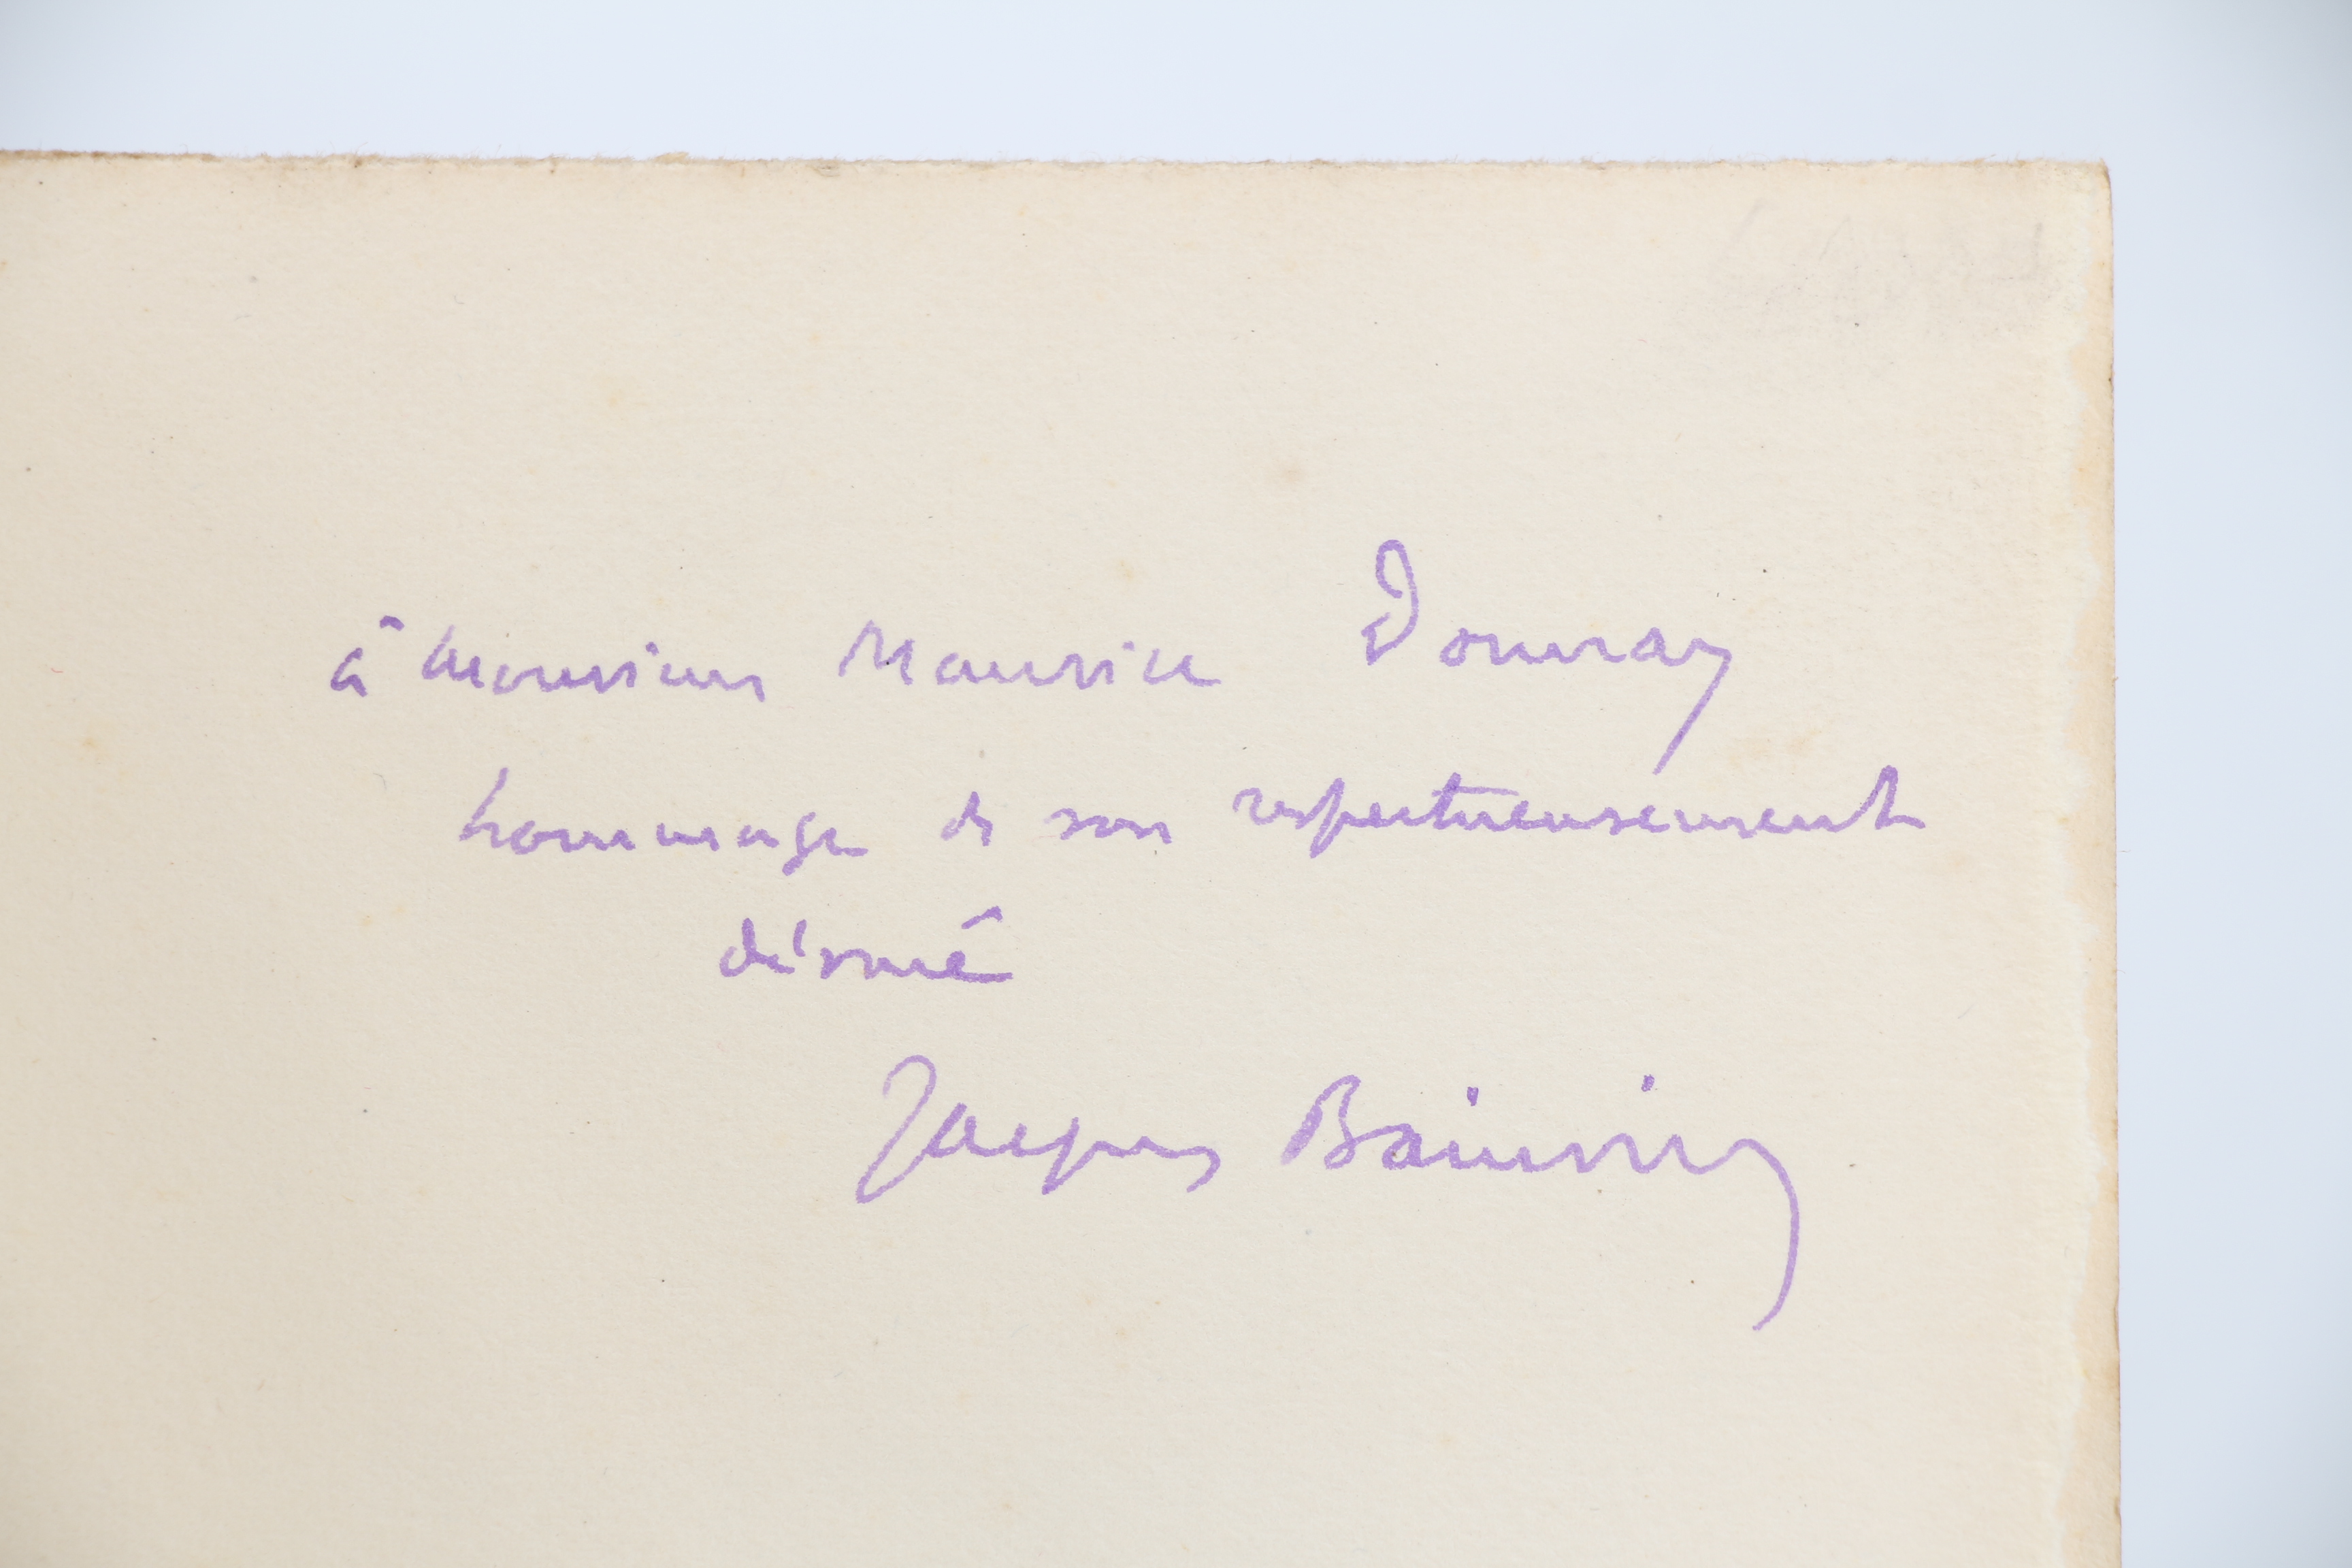 à Monsieur Maurice Donnay
hommage de son respectueusement
dévoué
Jacques Bainville